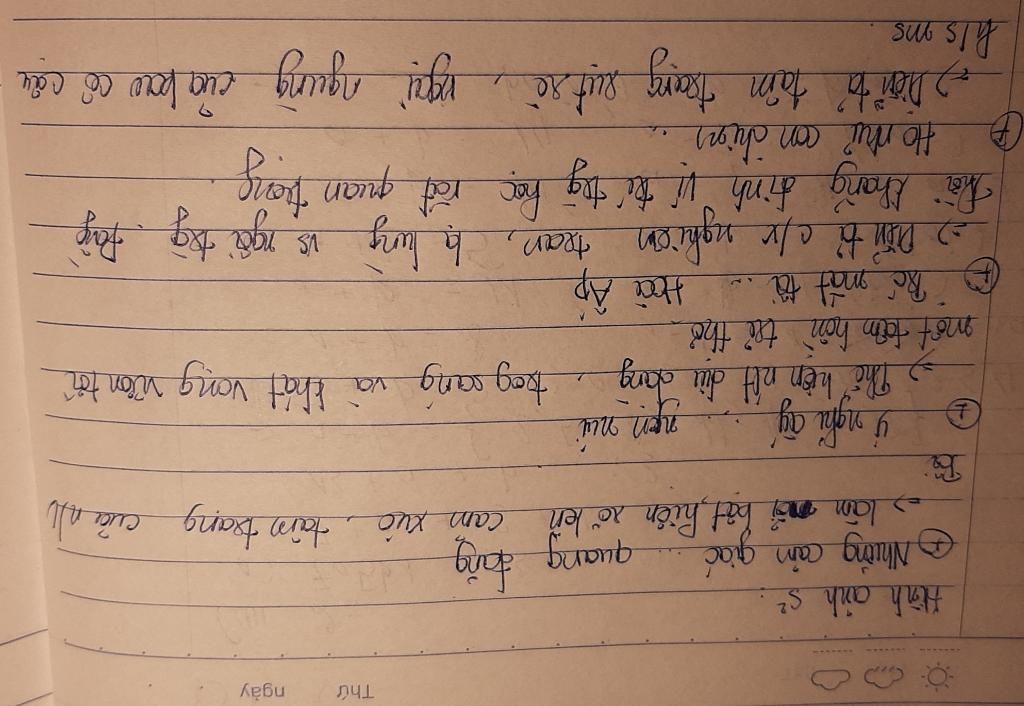 Thứ ngày
Hình ảnh s²:
+ Những cảm giác ... quang đãng
=> làm nổi bật, hiện rõ lên cảm xúc, tâm trạng của n/v
Bị
+ ý nghĩ ấy ... ngọn núi
=> Thể hiện nét dịu dàng, trog sáng và khát vọng vươn tới
một tâm hồn trẻ thơ
+ Trc mắt tôi ... Hoà Ấp
=> Diễn tả c/x nghiêm trang, lạ lùng vs ngôi trg. Đồng
thời khẳng định vị trí trg học rất quan trọng.
+ Họ như con chim ...
=> Diễn tả tâm trạng rụt rè, ngại ngùng của các cô cậu
h/s ms.